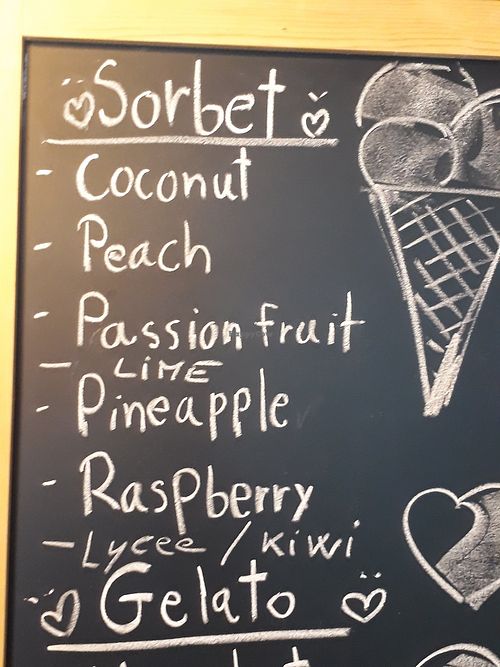 Sorbet
- Coconut
- Peach
- Passion fruit
- LIME
- Pineapple
- Raspberry
- Lycee / Kiwi
Gelato